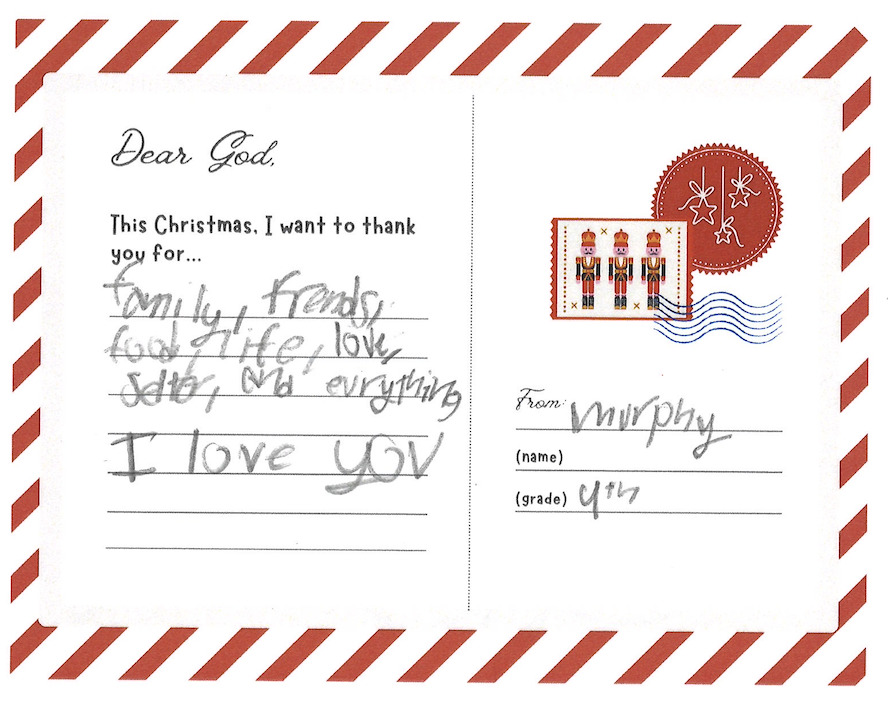 Dear God,
This Christmas, I want to thank
you for...
family, frends,
food, life, love,
and evrything
I love you
From: murphy
(name)
(grade) 4th